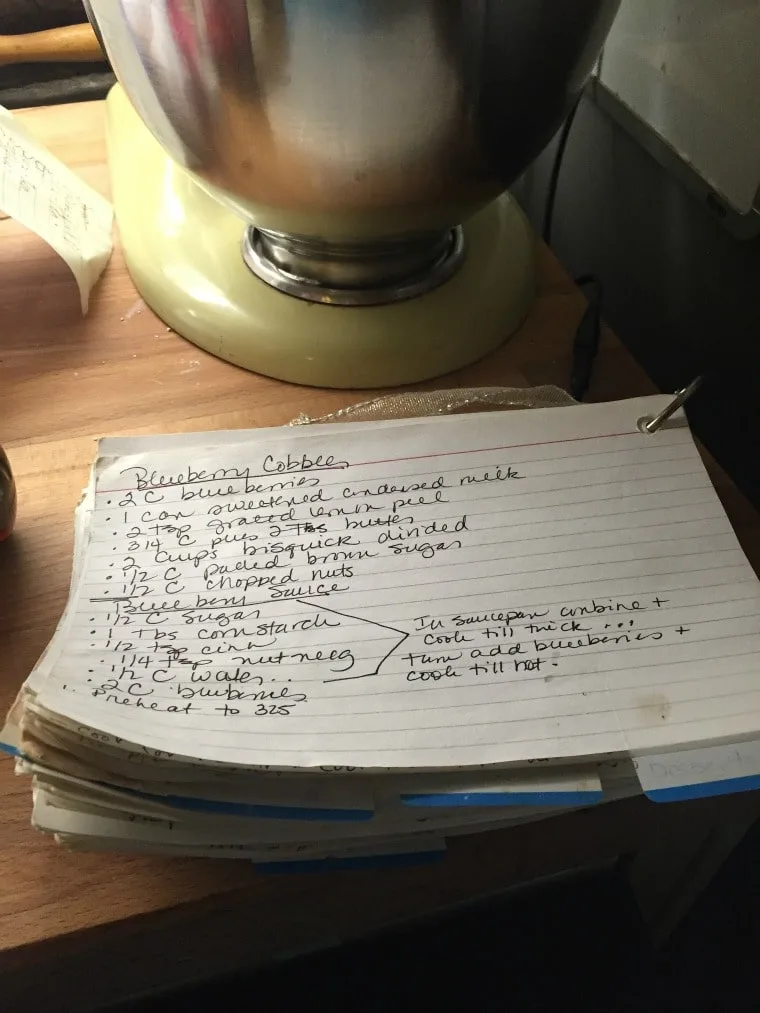 Blueberry Cobbler
· 2 C blueberries
· 1 can sweetened condensed milk
· 2 tsp grated lemon peel
· 3/4 C plus 2 Tbs butter
· 2 cups bisquick divided
· 1/2 C packed brown sugar
· 1/2 C chopped nuts
Blueberry Sauce
· 1/2 C sugar
· 1 Tbs cornstarch
· 1/2 tsp cinn
· 1/4 tsp nutmeg
· 1/2 C water..
· 2 C blueberries
Preheat to 325
In saucepan combine +
cook till thick ...
turn add blueberries +
cook till hot.
Dessert